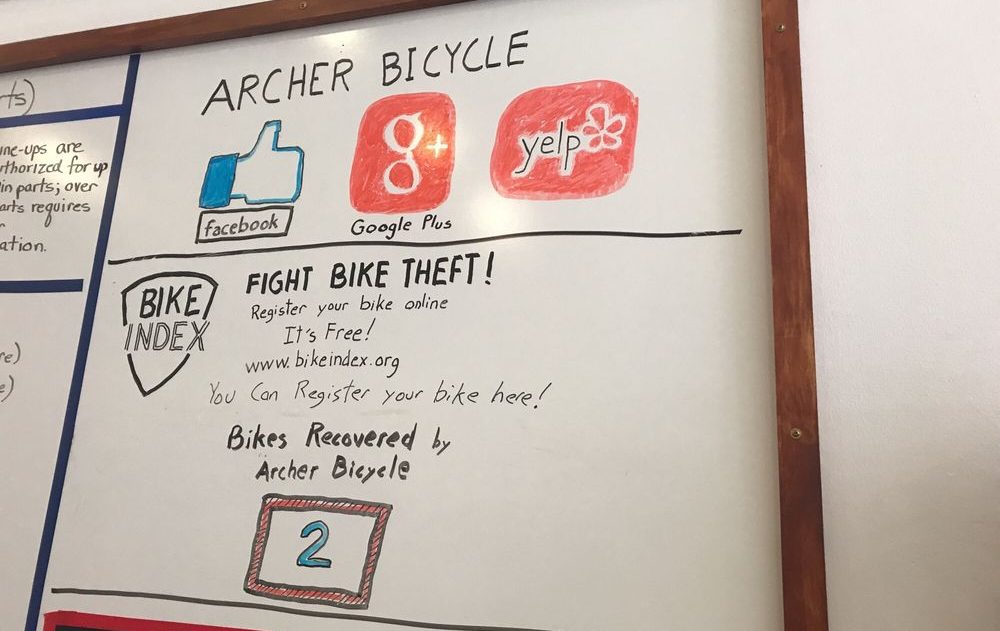 ts)
ine-ups are
thorized for up
in parts; over
arts requires
ation.
re)
e)
ARCHER BICYCLE
facebook
g+
Google Plus
yelp
BIKE
INDEX
FIGHT BIKE THEFT!
Register your bike online
It's Free!
www.bikeindex.org
You Can Register your bike here!
Bikes Recovered by
Archer Bicycle
2